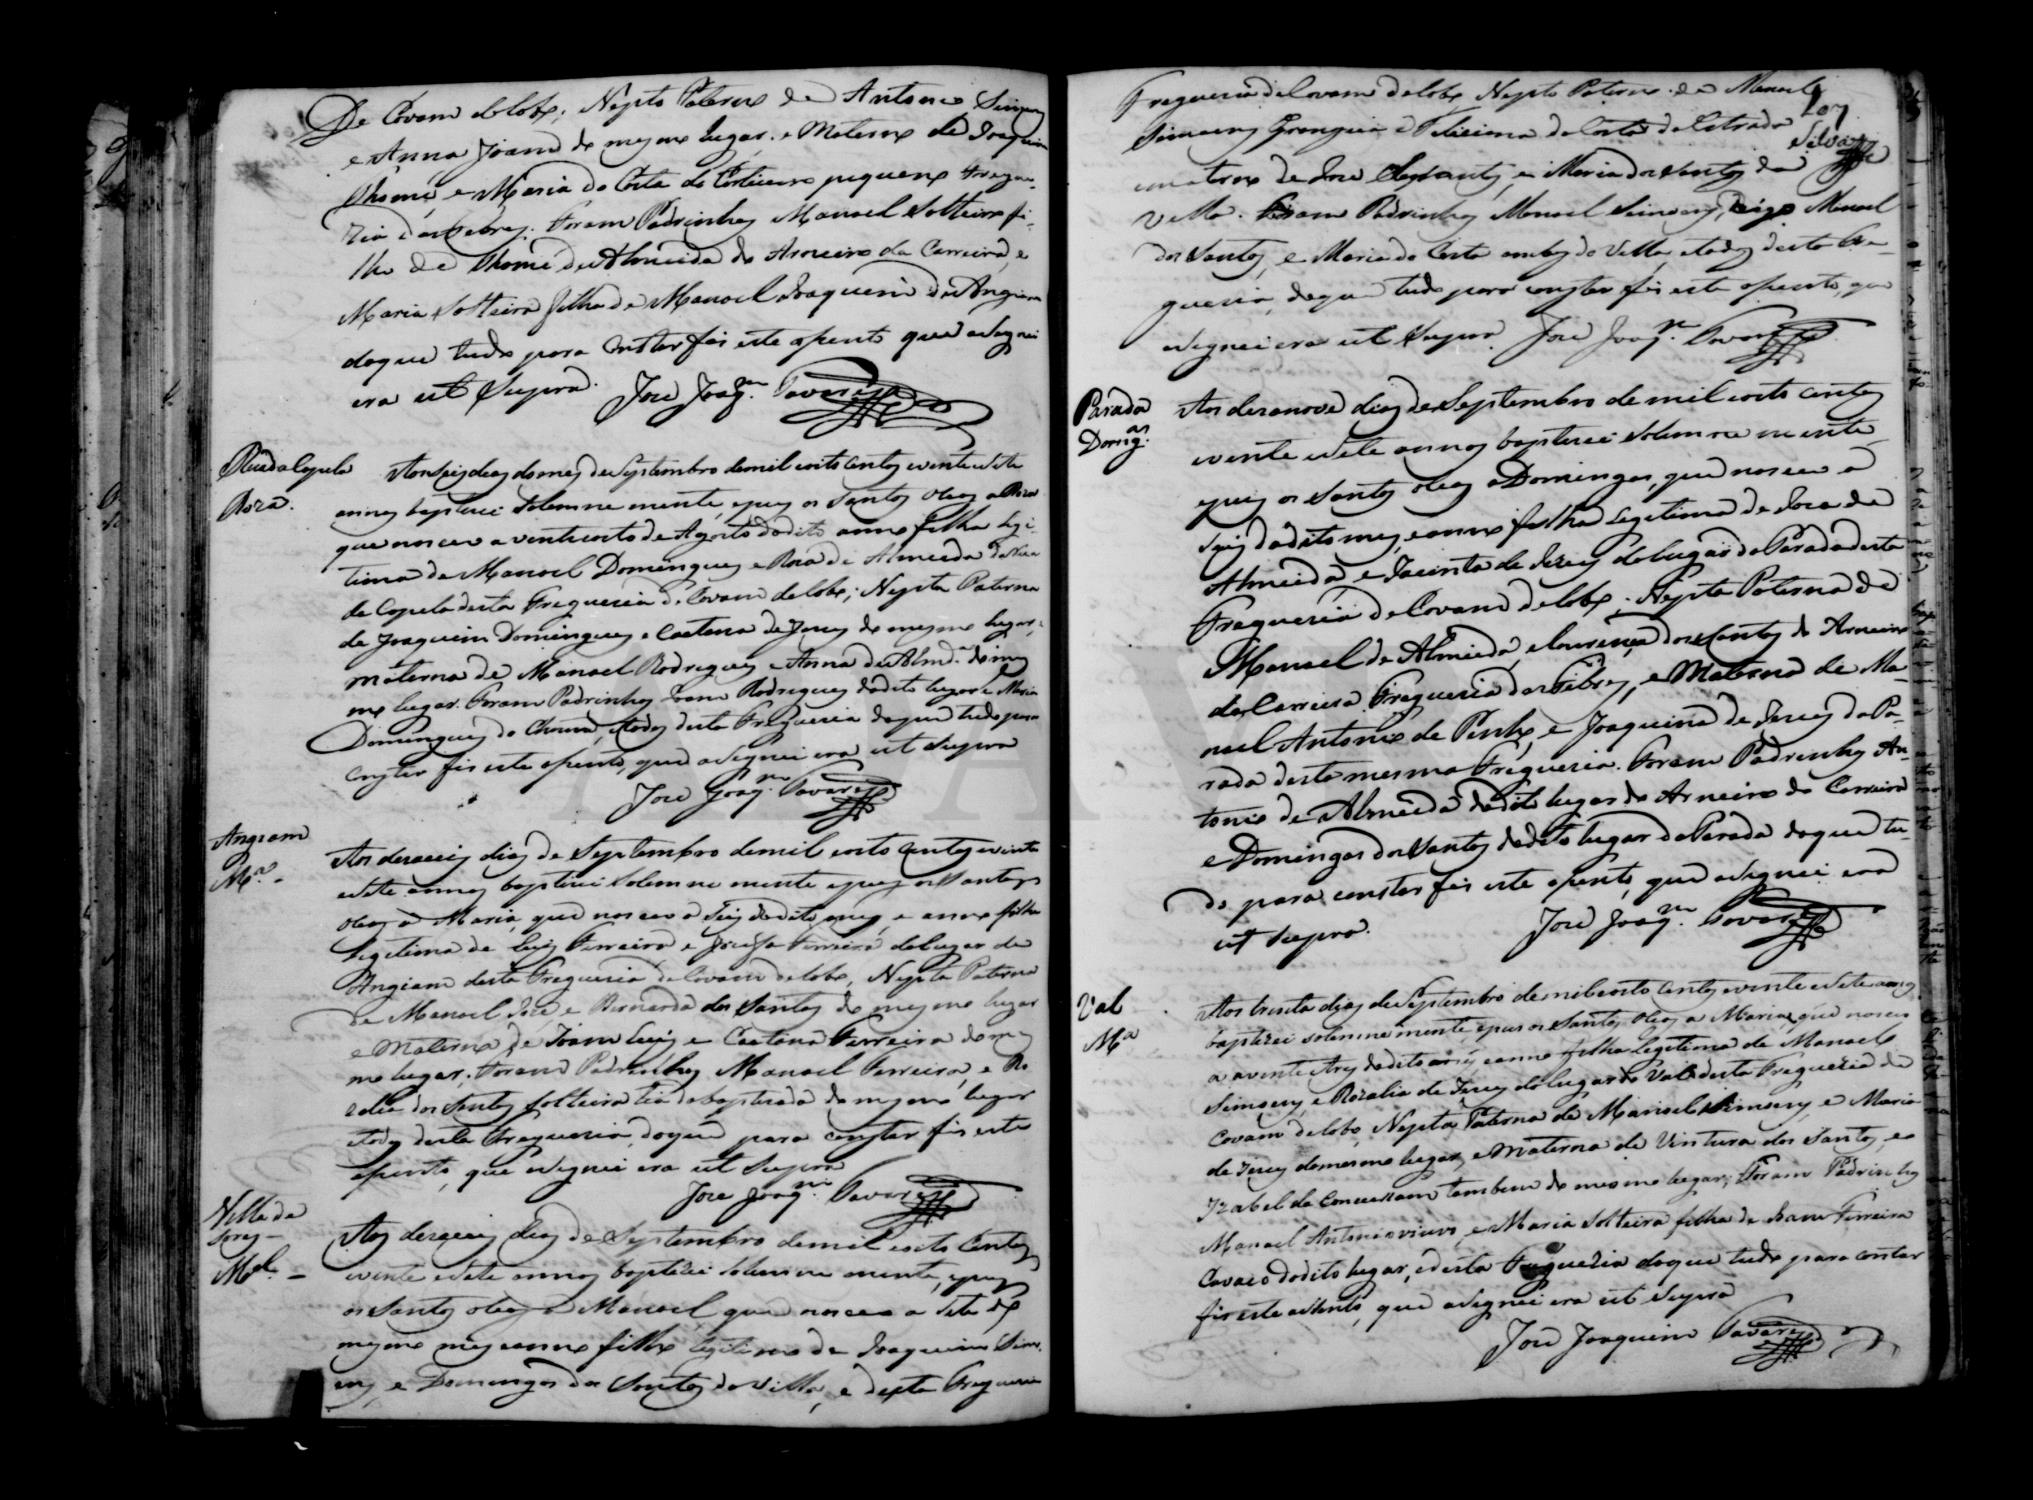 De Covam do lobo; Neptо Paterno de Antonio Simoens
e Anna Joana do mesmo lugar, e Materno de Joaquim
Thomé, e Maria da Costa do Corticeiro pequeno fregue-
zia das Febres. Foram Padrinhos Manoel Solteiro fi-
lho de Thome de Almeida do Arneiro da Carreira, e
Maria Solteira filha de Manoel Joaquim de Angiam
do que tudo para constar fis este asento que asignei
era ut Supra. Joze Joaqm. Tavares
Rua da Capela
Roza.
Aos seis dias do mes de Septembro de mil e oito centos e vinte e sete
annos baptizei Solemne mente, e puz os Santos oleos a Roza
que nasceo a vinte e oito de Agosto do dito anno filha legi-
tima de Manoel Domingues e Roza de Almeida da Rua
da Capela desta Freguezia de Covam do lobo; Nepta Paterna
de Joaquim Domingues e Caetana de Jezus do mesmo lugar,
materna de Manoel Rodrigues e Anna de Almda. do mes
mo lugar. Foram Padrinhos Joam Rodrigues do dito lugar e Maria
Domingues da Choza, e todos desta Freguezia do que tudo para
constar fis este asento, que asignei era ut supra
Joze Joaqm. Tavares
Angiam
Ma.
Aos dezaceis dias de Septembro de mil e oito centos e vinte
e sete annos baptizei Solemne mente e puz os Santos
oleos a Maria, que nasceo a seis do dito mes, e anno filha
Legitima de Luis Ferreira e Josefa Ferreira do lugar de
Angiam desta Freguezia de Covam do lobo, Nepta Paterna
de Manoel Joze e Bernarda dos Santos do mesmo lugar
e Materna de Joam Luis e Caetana Ferreira do mes
mo lugar. Foram Padrinhos Manoel Ferreira, e Ro
zalia dos Santos solteira tia da baptizada do mesmo lugar
e todos desta Freguezia, do que para constar fis este
asento, que asignei era ut Supra
Joze Joaqm. Tavares
Villa de
Mel.
Aos dezaceis dias de Septembro de mil e oito centos
e vinte e sete annos baptizei Solemne mente, e puz
os Santos oleos a Manoel, que nasceo a sete do
mesmo mes e anno filho legitimo de Joaquim Simo-
ens, e Domingas dos Santos da Villa, e desta Freguezia
Freguezia de Covam do lobo, Nepto Paterno de Manoel
Simoens e Feliciana da Costa da Estrada
e materno de Joze e Maria dos Santos da
Villa. Foram Padrinhos Manoel Simoens, digo Manoel
dos Santos, e Maria da Costa ambos da Villa, e todos desta Fre-
guezia, do que tudo para constar fis este asento, que
asignei era ut Supra. Joze Joaqm. Tavares
Silva
Parada
Domgas.
Aos dezanove dias de Septembro de mil e oito centos
e vinte e sete annos baptizei Solemne mente
e puz os Santos oleos a Domingas, que nasceo a
seis do dito mes, e anno filha Legitima de Joze de
Almeida, e Jacinta de Jezus do lugar da Parada desta
Freguezia de Covam do lobo; Nepta Paterna de
Manoel de Almeida, e Lourença dos Santos do Arneiro
da Carreira Freguezia das Febres, e Materna de Ma-
noel Antonio de Pinho, e Joaquina de Jezus da Pa-
rada desta mesma Freguezia. Foram Padrinhos An-
tonio de Almeida do dito lugar do Arneiro da Carreira
e Domingas dos Santos do dito lugar da Parada do que tu-
do para constar fis este asento, que asignei era
ut supra.
Joze Joaqm. Tavares
Val
Ma
Aos trinta dias de Septembro de mil e oito centos e vinte e sete annos
baptizei solemne mente, e puz os Santos oleos a Maria, que nasceo
a vinte e tres do dito mes, e anno filha legitima de Manoel
Simoens, e Rozalia de Jezus do lugar do Val desta Freguezia de
Covam do lobo, Nepta Paterna de Manoel Simoens, e Maria
de Jezus do mesmo lugar, e Materna de Vintura dos Santos, e
Izabel da Conceissam tambem do mesmo lugar; Foram Padrinhos
Manoel Antonio viuvo, e Maria Solteira filha de Joam Ferreira
Cavaco do dito lugar, e desta Freguezia do que tudo para constar
fis este asento, que asignei era ut Supra
Joze Joaquim Tavares